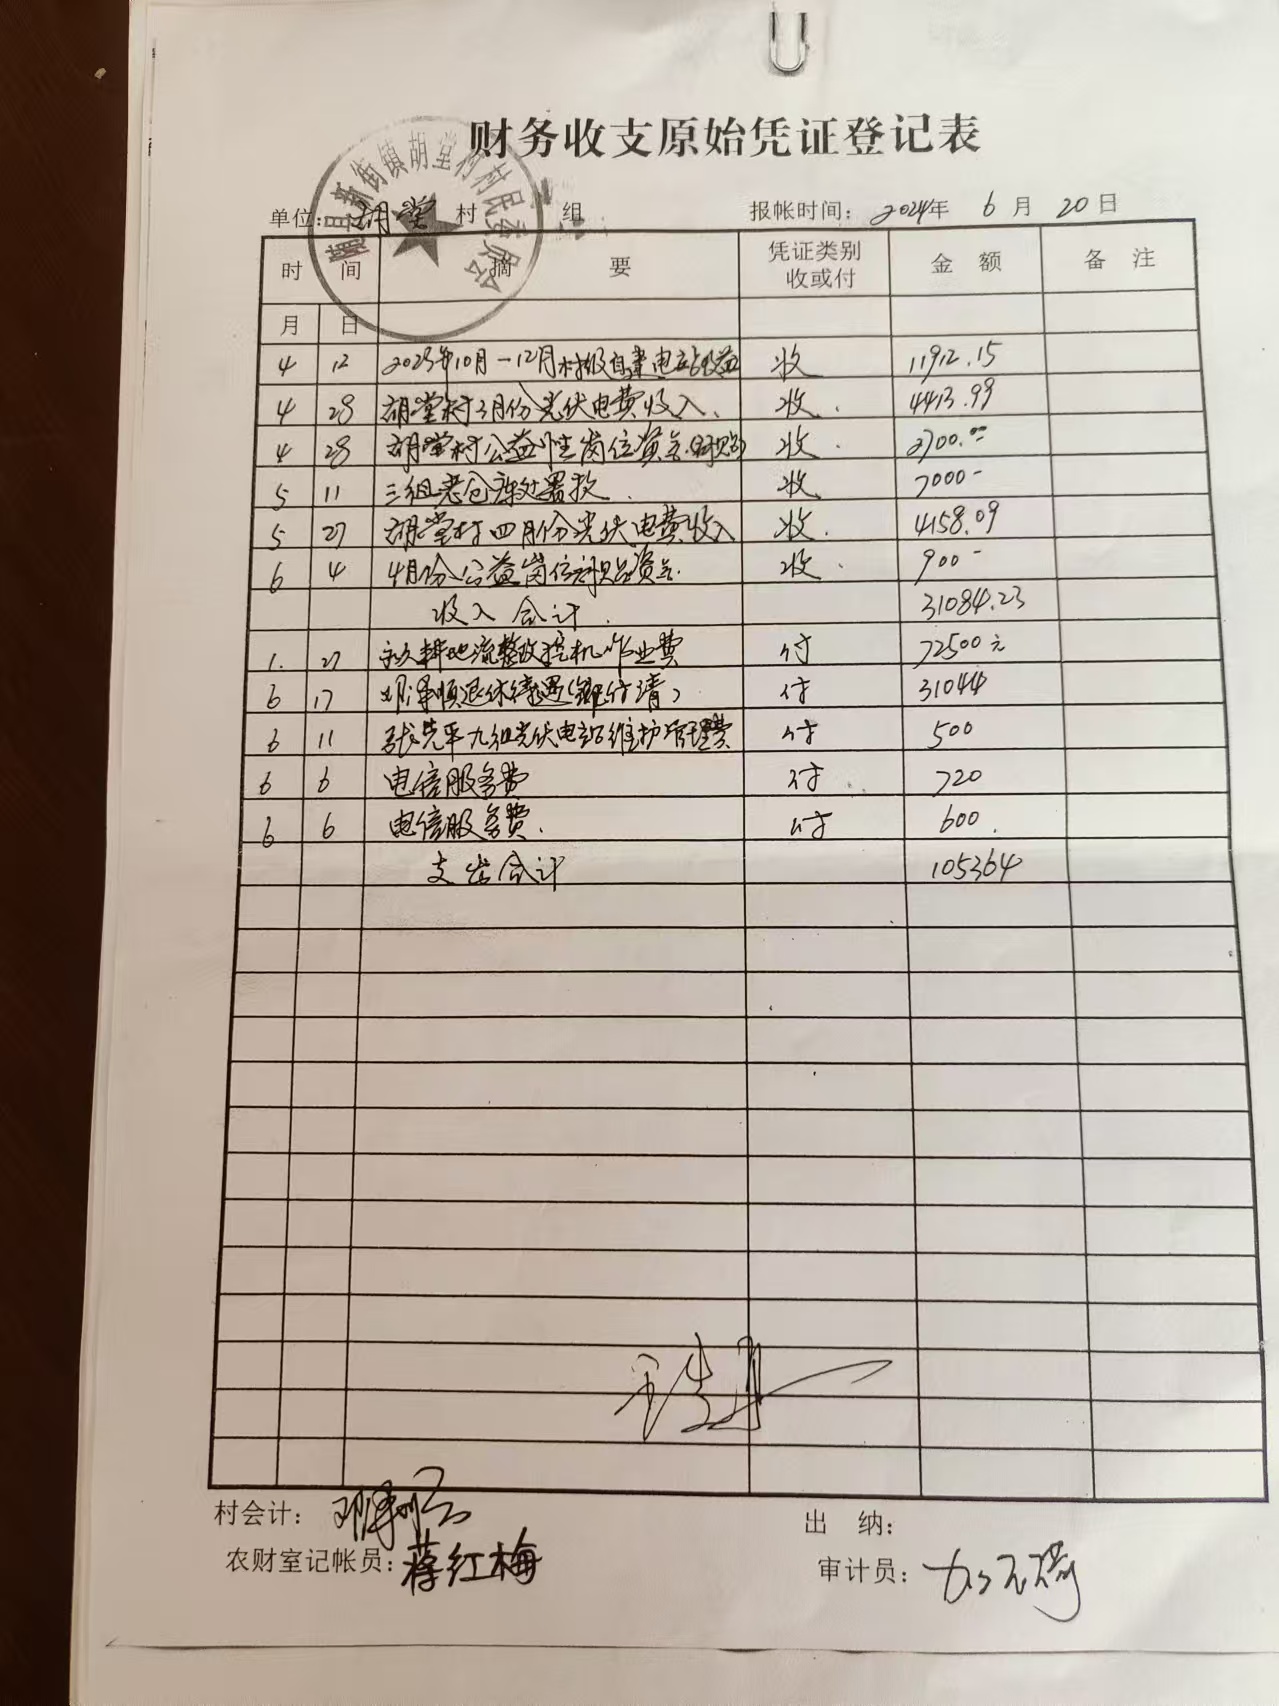 财务收支原始凭证登记表
随县新街镇胡堂村村民委员会
单位：胡堂 村 组 报帐时间：2024年 6月 20日
时 间 摘 要 凭证类别 收或付 金 额 备 注
月 日
4 12 2023年10月-12月村级自建电站收益 收 11912.15
4 28 胡堂村3月份光伏电费收入. 收. 4413.99
4 28 胡堂村公益性岗位资金(补贴) 收. 2700.00
5 11 三组老仓库处置款. 收 7000-
5 27 胡堂村四月份光伏电费收入 收. 4158.09
6 4 4月份公益岗位补贴资金. 收. 900-
收入合计. 31084.23
1. 27 永久耕地流整改挖机作业费 付 72500元
6 17 退休待遇(付清) 付 31044
6 11 张先平九组光伏电站维护管理费 付 500
6 6 电信服务费 付 720
6 6 电信服务费. 付 600.
支出合计 105364
村会计： 出 纳：
农财室记帐员：蒋红梅 审计员：